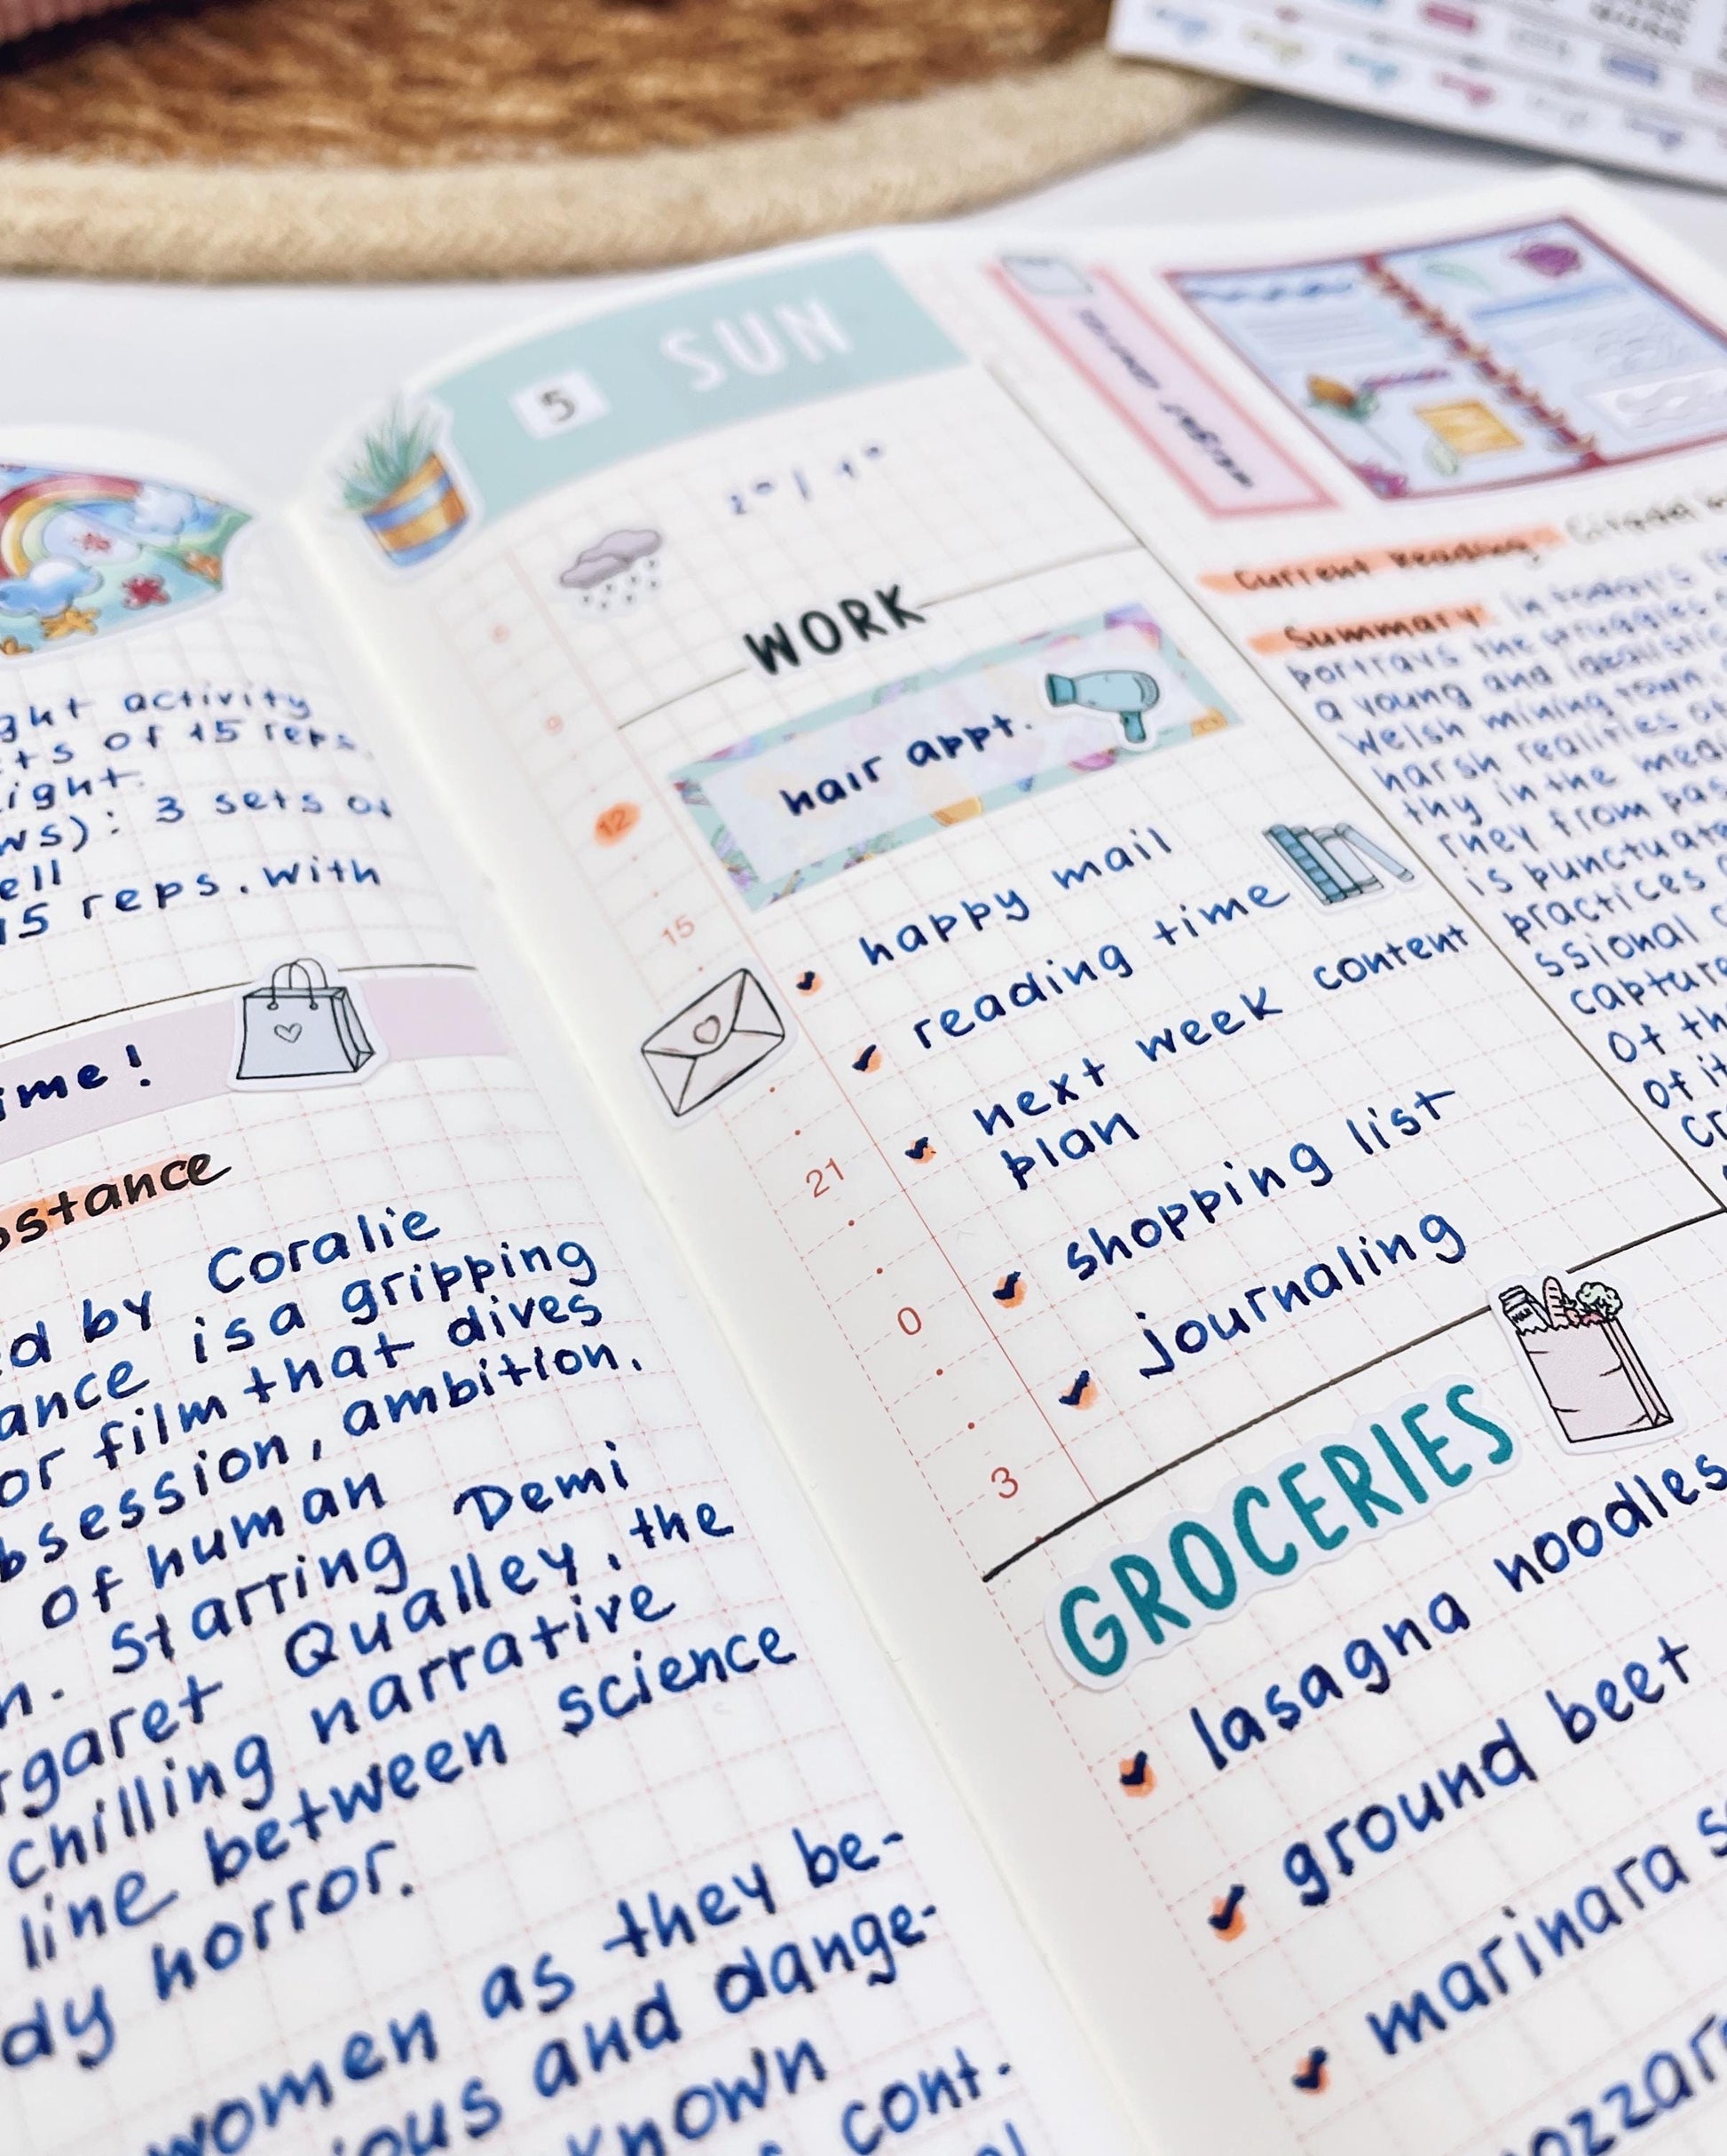 ght activity
ts of 15 reps.
ight.
ws): 3 sets of
ell
15 reps. with
ime!
stance
d by Coralie
ance is a gripping
or film that dives
bsession, ambition,
of human
n. Starring Demi
rgaret Qualley, the
chilling narrative
line between science
dy horror.
women as they be-
ious and dange-
known
cont.
5 SUN
WORK
hair appt.
happy mail
reading time
next week content
plan
shopping list
journaling
6
9
12
15
21
0
3
GROCERIES
lasagna noodles
ground beef
marinara s
ozzar
Current Reading: Citadel
Summary: In today's
portrays the struggles
a young and idealistic
Welsh mining town,
harsh realities of
thy in the medi
rney from pas
is punctuat
practices
ssional c
captur
of th
of it
cr